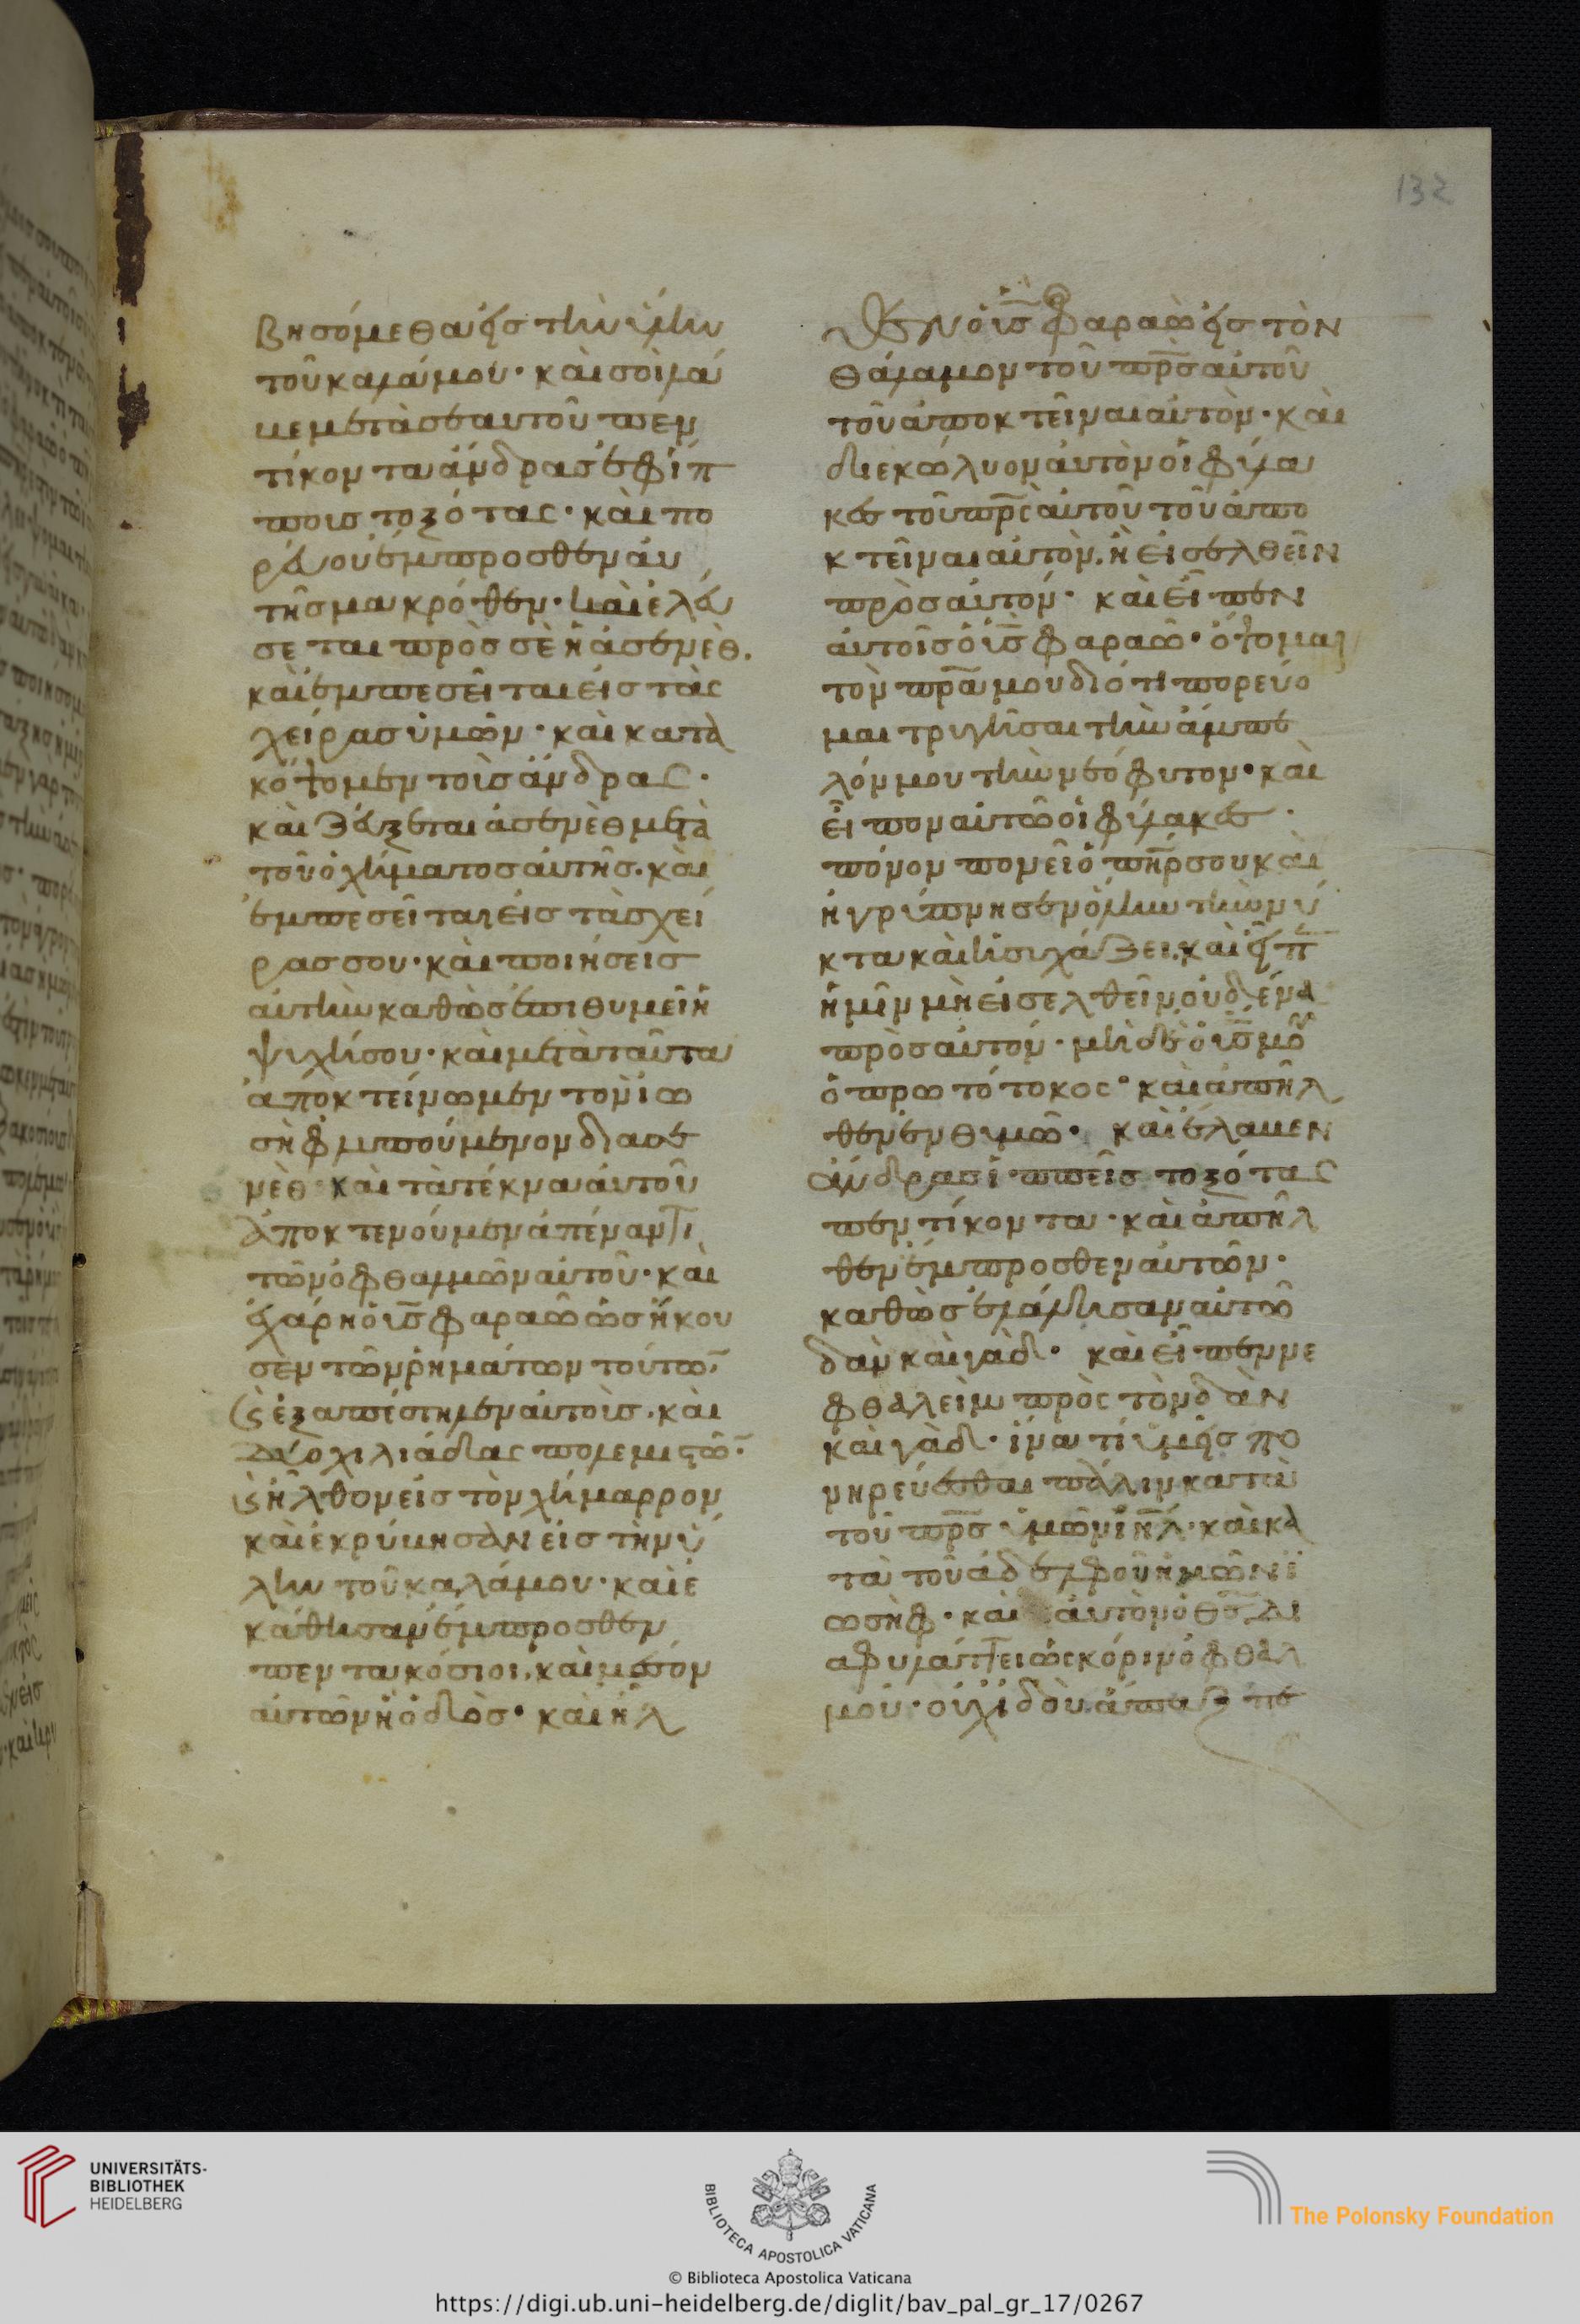 132
βησόμεθα εἰς τὴν ὕλην
τοῦ καλάμου· καὶ σοὶ λά
βε μετὰ σεαυτοῦ πεν
τίκοντα ἄνδρας ἐφ ἵπ
ποις τοξότας· καὶ πο
ρεύου ἔμπροσθεν αὐ
τῆς μακρόθεν· καὶ ἐλεύ
σεται πρὸς σὲ ἡ ἀσενὲθ.
καὶ ἐμπεσεῖται εἰς τὰς
χεῖρας ὑμῶν· καὶ κατα
κόψομεν τοὺς ἄνδρας·
καὶ φεύξεται ἀσενὲθ μετὰ
τοῦ ὀχήματος αὐτῆς. καὶ
ἐμπεσεῖται εἰς τὰς χεῖ
ρας σου· καὶ ποιήσεις
αὐτὴν καθὼς ἐπιθυμεῖ ἡ
ψυχή σου· καὶ μετὰ ταῦτα
ἀποκτείνωμεν τὸν ἰω
σὴφ λυπούμενον δι ασε
νὲθ· καὶ τὰ τέκνα αὐτοῦ
ἀποκτενούμεν ἀπέναντι
τῶν ὀφθαλμῶν αὐτοῦ· καὶ
ἐχάρη ὁ υἱς φαραῶ ὡς ἤκου
σεν τῶν ῥημάτων τούτω
ϗ ἐξαπέστηλεν αὐτοὺς. καὶ
δισχιλιάδας πολεμιστῶ
ϗ ἦλθον εἰς τὸν χήμαρρον
καὶ ἐκρύβησαν εἰς τὴν ὕ
λην τοῦ καλάμου· καὶ ἐ
κάθησαν ἔμπροσθεν
πεντακόσιοι. καὶ μέσον
αὐτῶν ἡ ὁδὸς· καὶ ἦλ
θεν ὁ υἱς φαραὼ εἰς τὸν
θάλαμον τοῦ πρς αὐτοῦ
τοῦ ἀποκτεῖναι αὐτὸν. καὶ
διεκώλυον αὐτὸν οἱ φύλα
κες τοῦ πρς αὐτοῦ τοῦ ἀπο
κτεῖναι αὐτὸν. ἢ εἰσελθεῖν
πρὸς αὐτόν· καὶ εἶπεν
αὐτοῖς ὁ υἱς φαραῶ· ὄψομαι
τὸν πρα μου διότι πορεύο
μαι τρυγῆσαι τὴν ἄμπε
λόν μου τὴν νεόφυτον· καὶ
εἶπον αὐτῶ οἱ φύλακες·
πόνον πονεῖ ὁ πηρ σου καὶ
ἠγρύπνησεν ὅλην τὴν νύ
κτα καὶ ἡσυχάζει. καὶ εἶπ
ἡμῖν μὴ εἰσελθεῖν οὐδένα
πρὸς αὐτόν· μηδὲ ὁ υἱς μου
ὁ πρωτότοκος· καὶ ἀπῆλ
θεν ἐν θυμῶ· καὶ ἔλαβεν
ἄνδρας ἱππεῖς τοξότας
πεντίκοντα· καὶ ἀπῆλ
θεν ἔμπροσθεν αὐτῶν·
καθὼς ἐλάλησαν αὐτῶ
δὰν καὶ γὰδ· καὶ εἶπεν νε
φθαλεὶμ πρὸς τὸν δὰν
καὶ γὰδ· ἵνα τί ὑμεῖς πο
νηρεύεσθαι πάλιν κατὰ
τοῦ πρς ὑμῶν ιηλ· καὶ κα
τὰ τοῦ ἀδελφοῦ ἡμῶν ἰ
ωσὴφ· καὶ αὐτὸν ὁ θς δι
αφυλάττει ὡς κόριν ὀφθαλ
μοῦ· οὐχ ἰδοὺ ἅπαξ πε
UNIVERSITÄTS-
BIBLIOTHEK
HEIDELBERG
BIBLIOTECA APOSTOLICA VATICANA
The Polonsky Foundation
© Biblioteca Apostolica Vaticana
https://digi.ub.uni-heidelberg.de/diglit/bav_pal_gr_17/0267